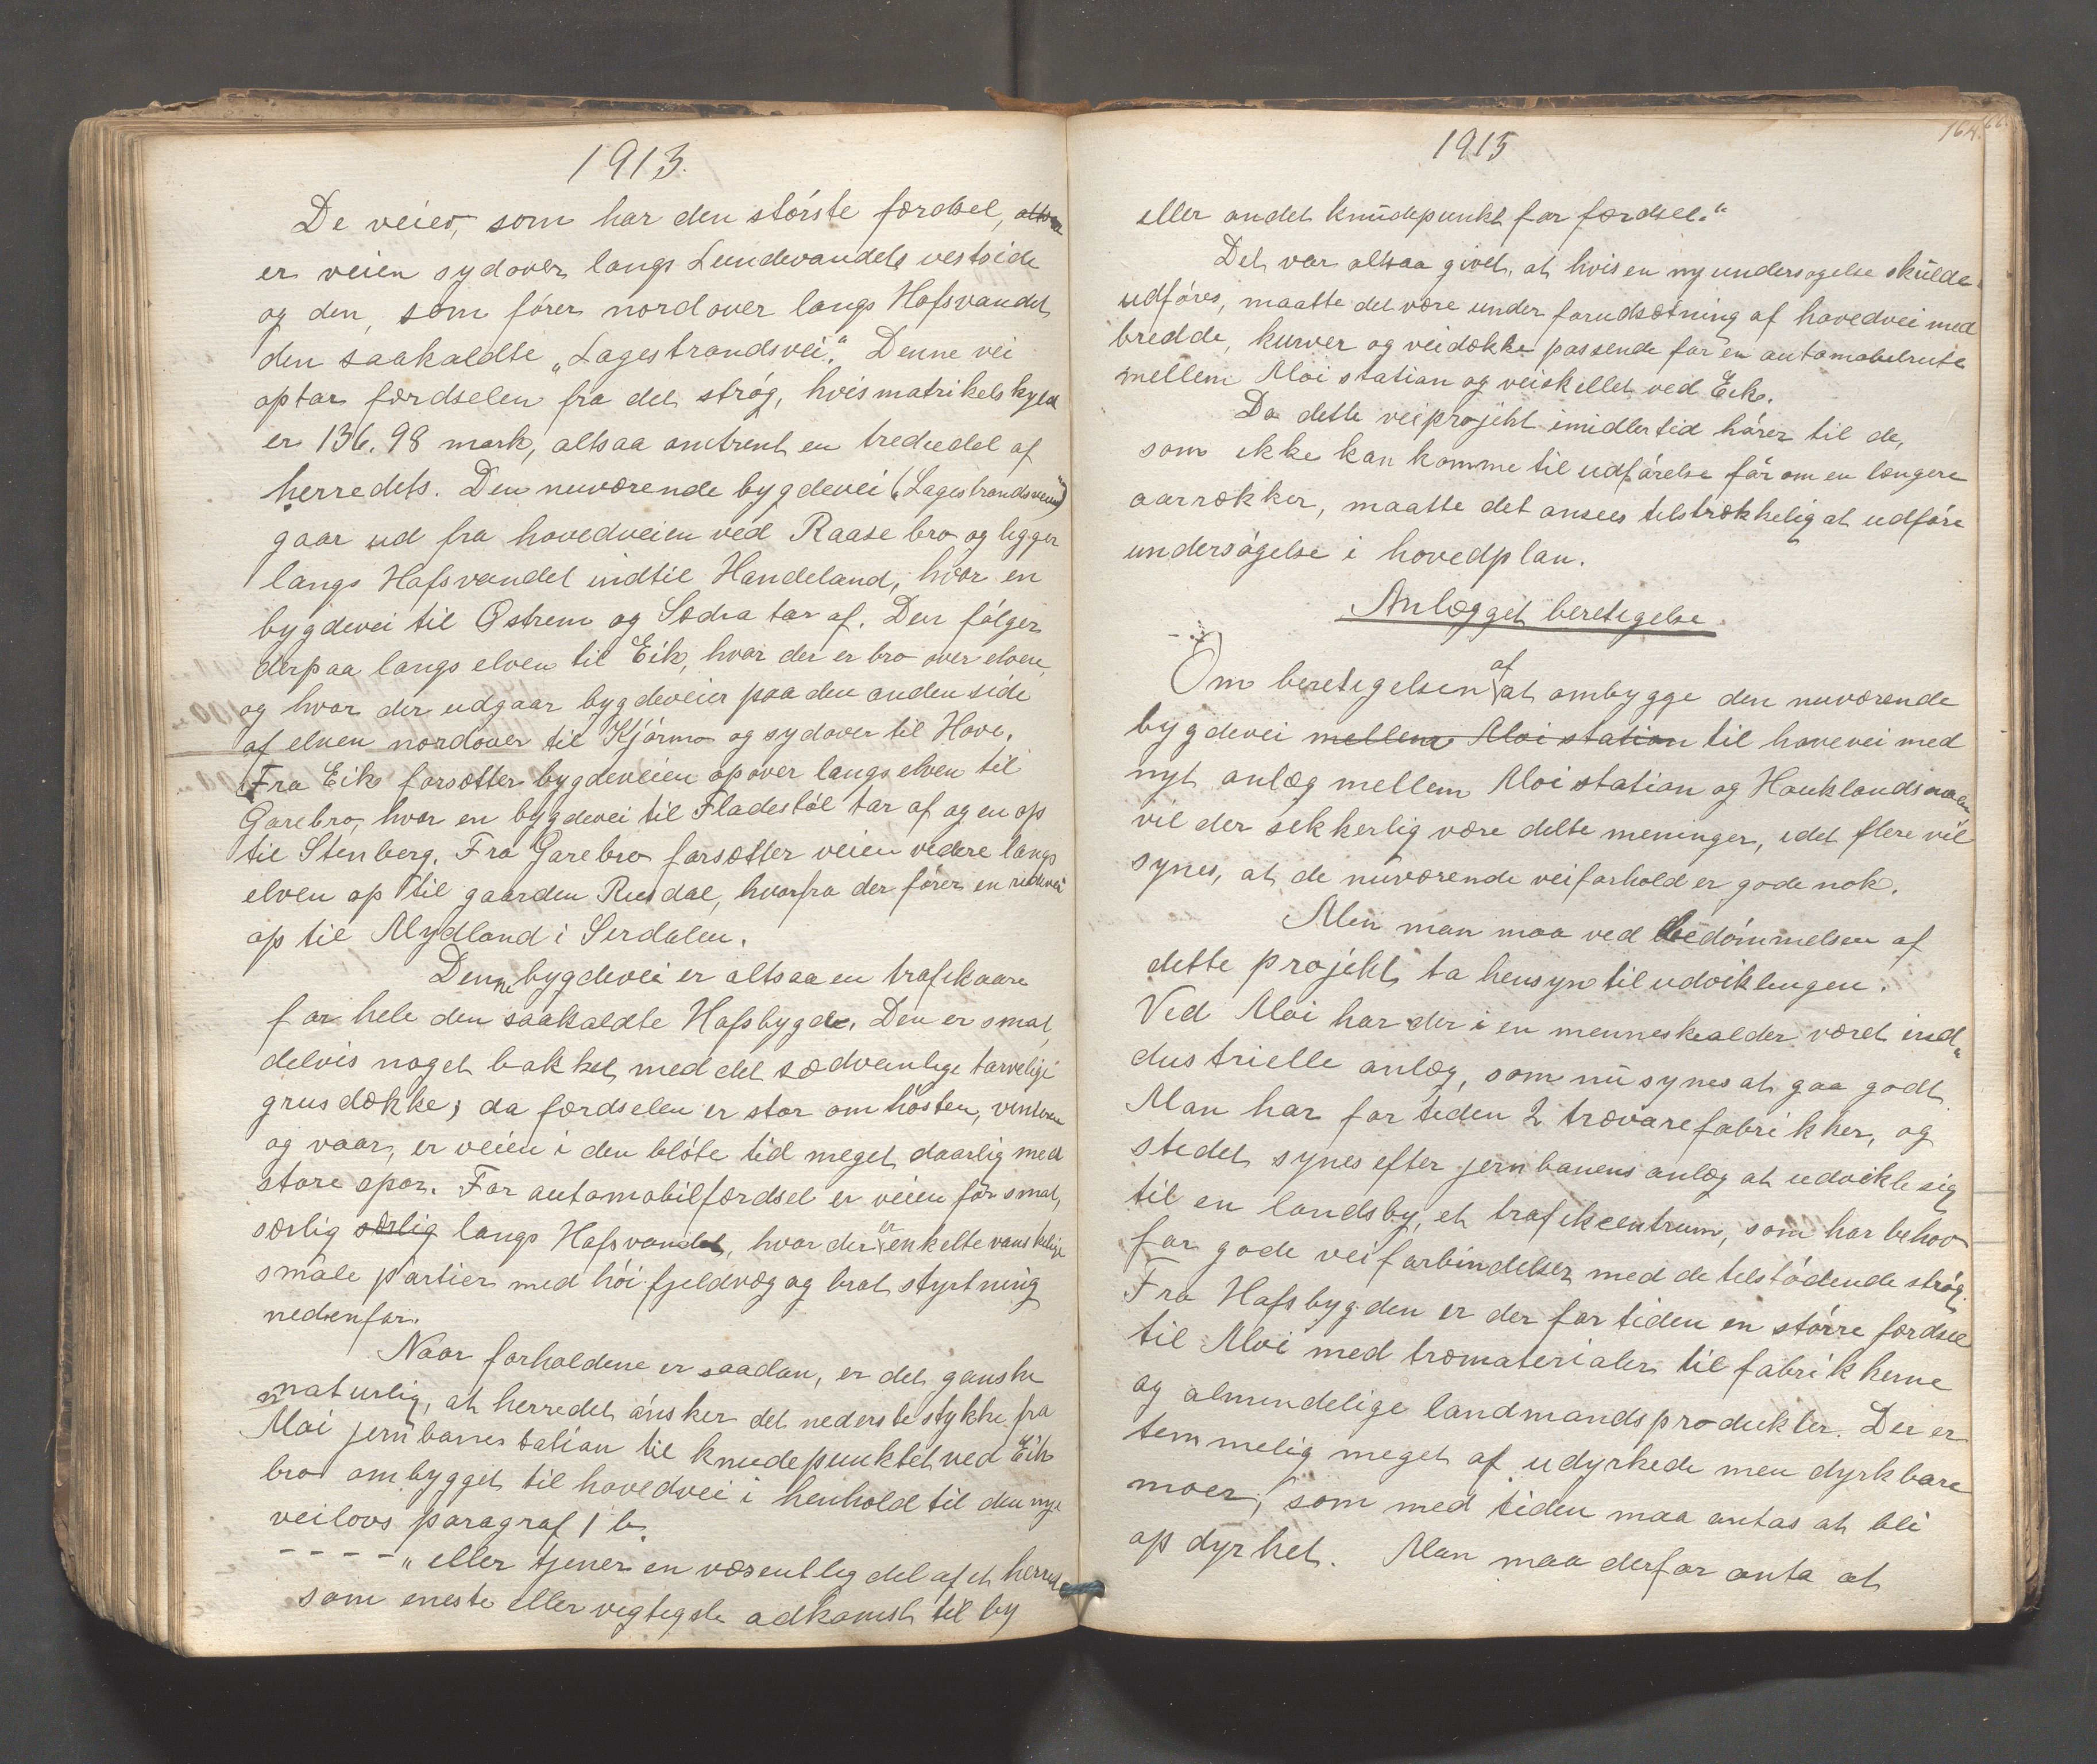 1913.
De veier, som har den störste færdsel, altsaa
er veien sydover langs Lundevandets vestside
og den, som förer nordover langs Hafsvandet,
den saakaldte „Lagestrandsvei“. Denne vei
optar færdselen fra det strög, hvis matrikelskyld
er 136.98 mark, altsaa omtrent en trediedel af
herredets. Den nuværende bygdevei („Lagestrandsveien“)
gaar ud fra hovedveien ved Raase bro og ligger
langs Hafsvandet indtil Handeland, hvor en
bygdevei til Östrem og Sædra tar af. Den fölger
derpaa langs elven til Eik, hvor der er bro over elven
og hvor der udgaar bygdeveier paa den anden side
af elven nordover til Kjörmo og sydover til Hove.
Fra Eik forsætter bygdeveien opover langs elven til
Garebro, hvor en bygdevei til Fladestöl tar af og en op
til Stenberg. Fra Garebro forsætter veien videre langs
elven op til gaarden Rusdal, hvorfra der förer en ridevei
op til Mydland i Sirdalen.
Denne bygdevei er altsaa en trafikaare
for hele den saakaldte Hafsbygd. Den er smal,
delvis noget bakket, med det sædvanlige tarvelige
grusdække; da færdselen er stor om hösten, vinteren
og vaar, er veien i den blöte tid meget daarlig med
store spor. For automobilfærdsel er veien for smal,
særlig særlig langs Hafsvandet, hvor der er enkelte vanskelige
smale partier med höi fjeldvæg og brat styrtning
nedenfor.
Naar forholdene er saadan, er det ganske
naturlig, at herredet önsker det nederste stykke fra
Moi jernbanestation til knudepunktet ved Eik
bro ombygget til hovedvei i henhold til den nye
veilovs paragraf 1 b.
- - - - „eller tjener en væsentlig del af et herred
som eneste eller vigtigste adkomst til by
1915
164.
eller andet knudepunkt for færdsel.“
Det var altsaa givet, at hvis en ny undersögelse skulde
udföres, maatte det være under forudsætning af hovedvei med
bredde, kurver og veidække passende for en automobilrute
mellem Moi station og veiskillet ved Eik.
Da dette veiprojekt imidlertid hörer til de,
som ikke kan komme til udförelse för om en længere
aarrækker, maatte det ansees tilstrækkelig at udföre
undersögelse i hovedplan.
Anlægget beretigelse.
Om beretigelsen af at ombygge den nuværende
bygdevei mellem Moi station til hovevei med
nyt anlæg mellem Moi station og Hauklandsmoen
vil der sikkerlig være delte meninger, idet flere vil
synes, at de nuværende veiforhold er gode nok.
Men man maa ved bedömmelsen af
dette projekt ta hensyn til udviklingen.
Ved Moi har der i en menneskealder været ind-
dustrielle anlæg, som nu synes at gaa godt.
Man har for tiden 2 trævarefabrikker, og
stedet synes efter jernbanens anlæg at udvikle sig
til en landsby, et trafikcentrum, som har behov
for gode veiforbindelser med de tilstödende strög.
Fra Hafsbygden er der for tiden en större færdsel
til Moi med træmaterialer til fabrikkerne
og almindelige landmandsprodukter. Der er
temmelig meget af udyrkede men dyrkbare
moer, som med tiden maa antas at bli
op dyrket. Man maa derfor anta at